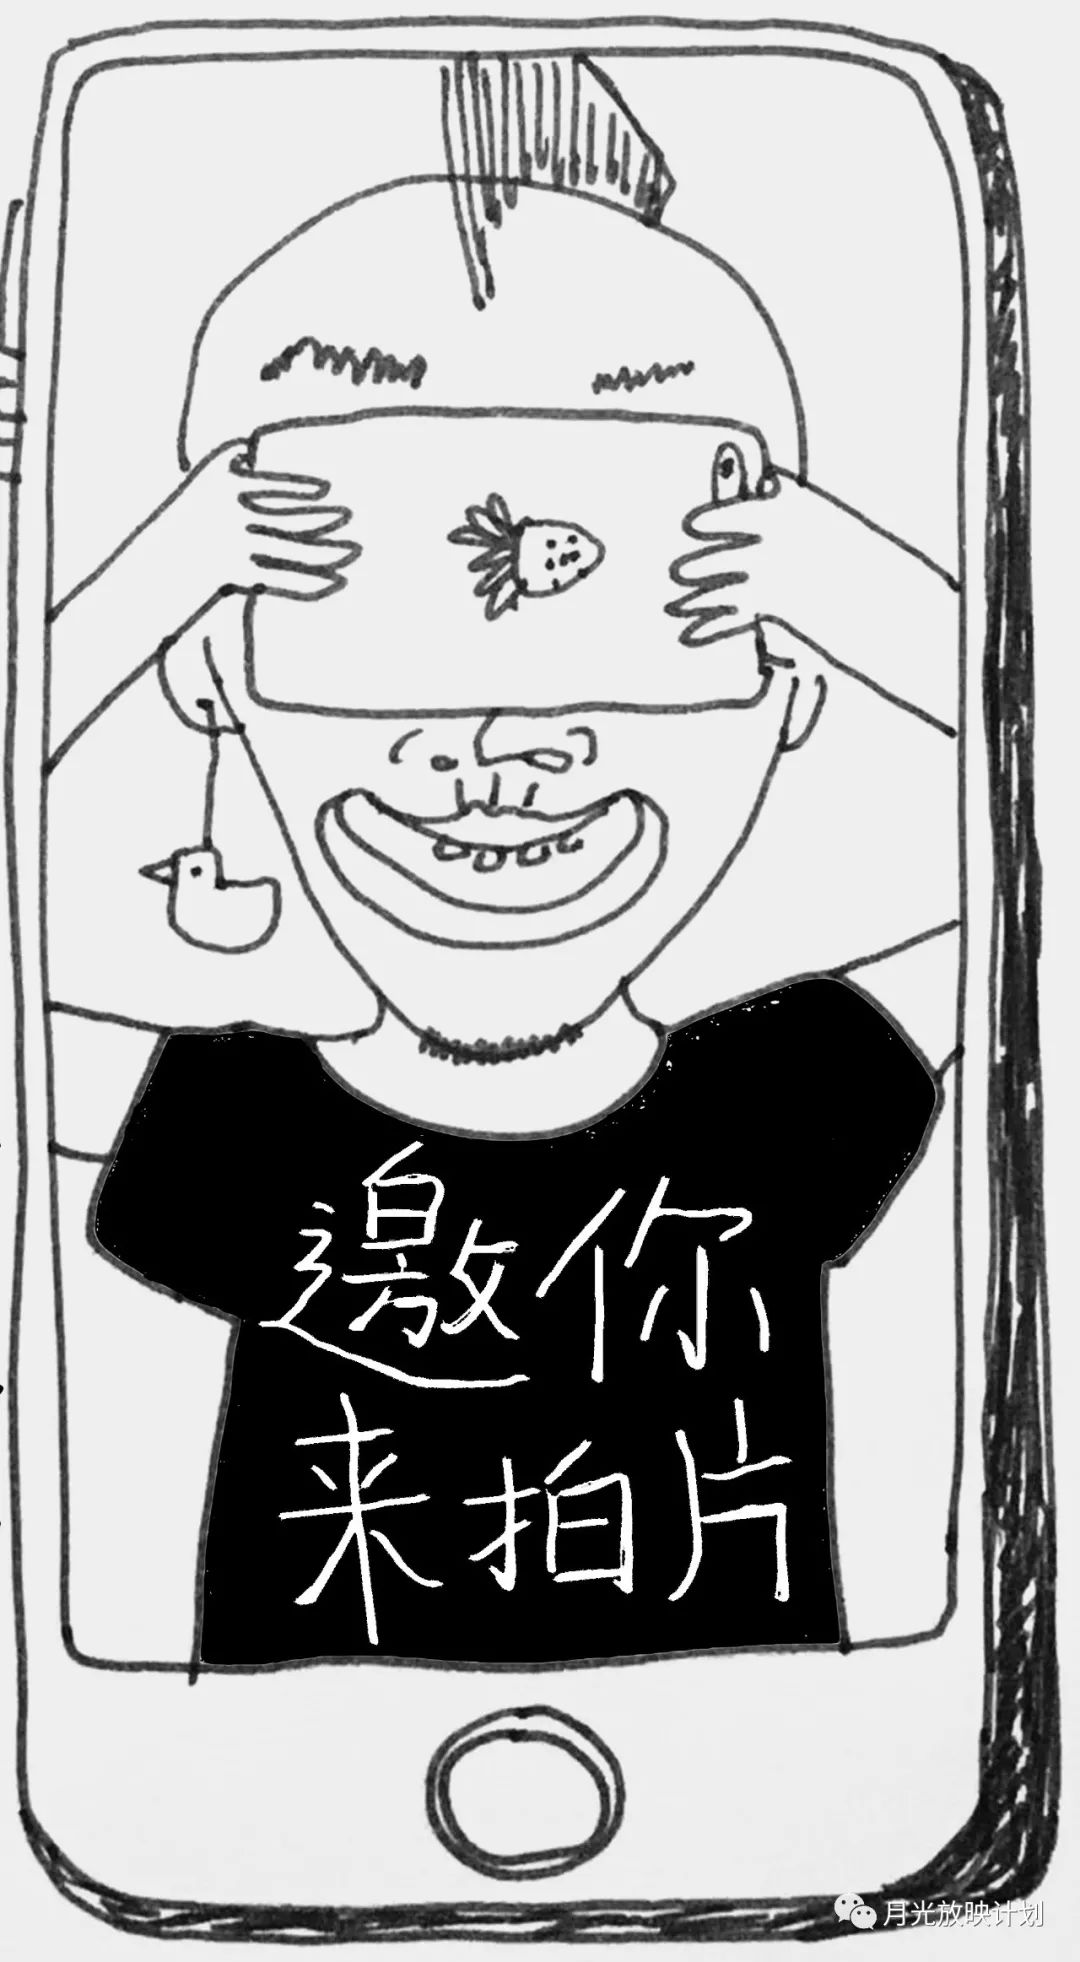 邀你
来拍片
月光放映计划